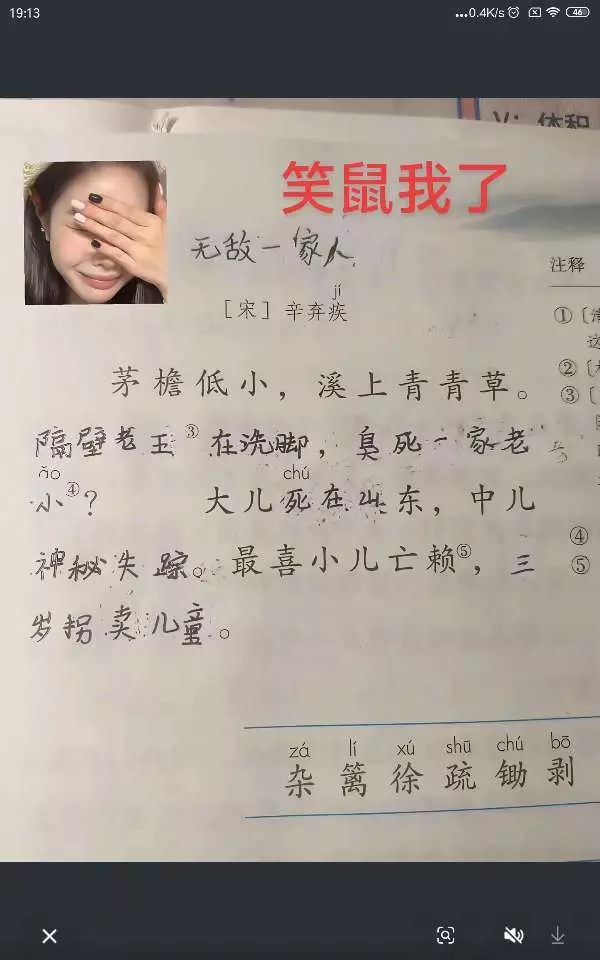 19:13
...0.4K/s
46
V：体积
笑鼠我了
无敌一家人
注释
jí
［宋］辛弃疾
①〔清
这
②〔
③〔
茅檐低小，溪上青青草。
隔壁老王③在洗脚，臭死一家老
ǎo chú
小④？ 大儿死在山东，中儿
④
神秘失踪。最喜小儿亡赖⑤，三
⑤
岁拐卖儿童。
zá lí xú shū chú bō
杂篱徐疏锄剥